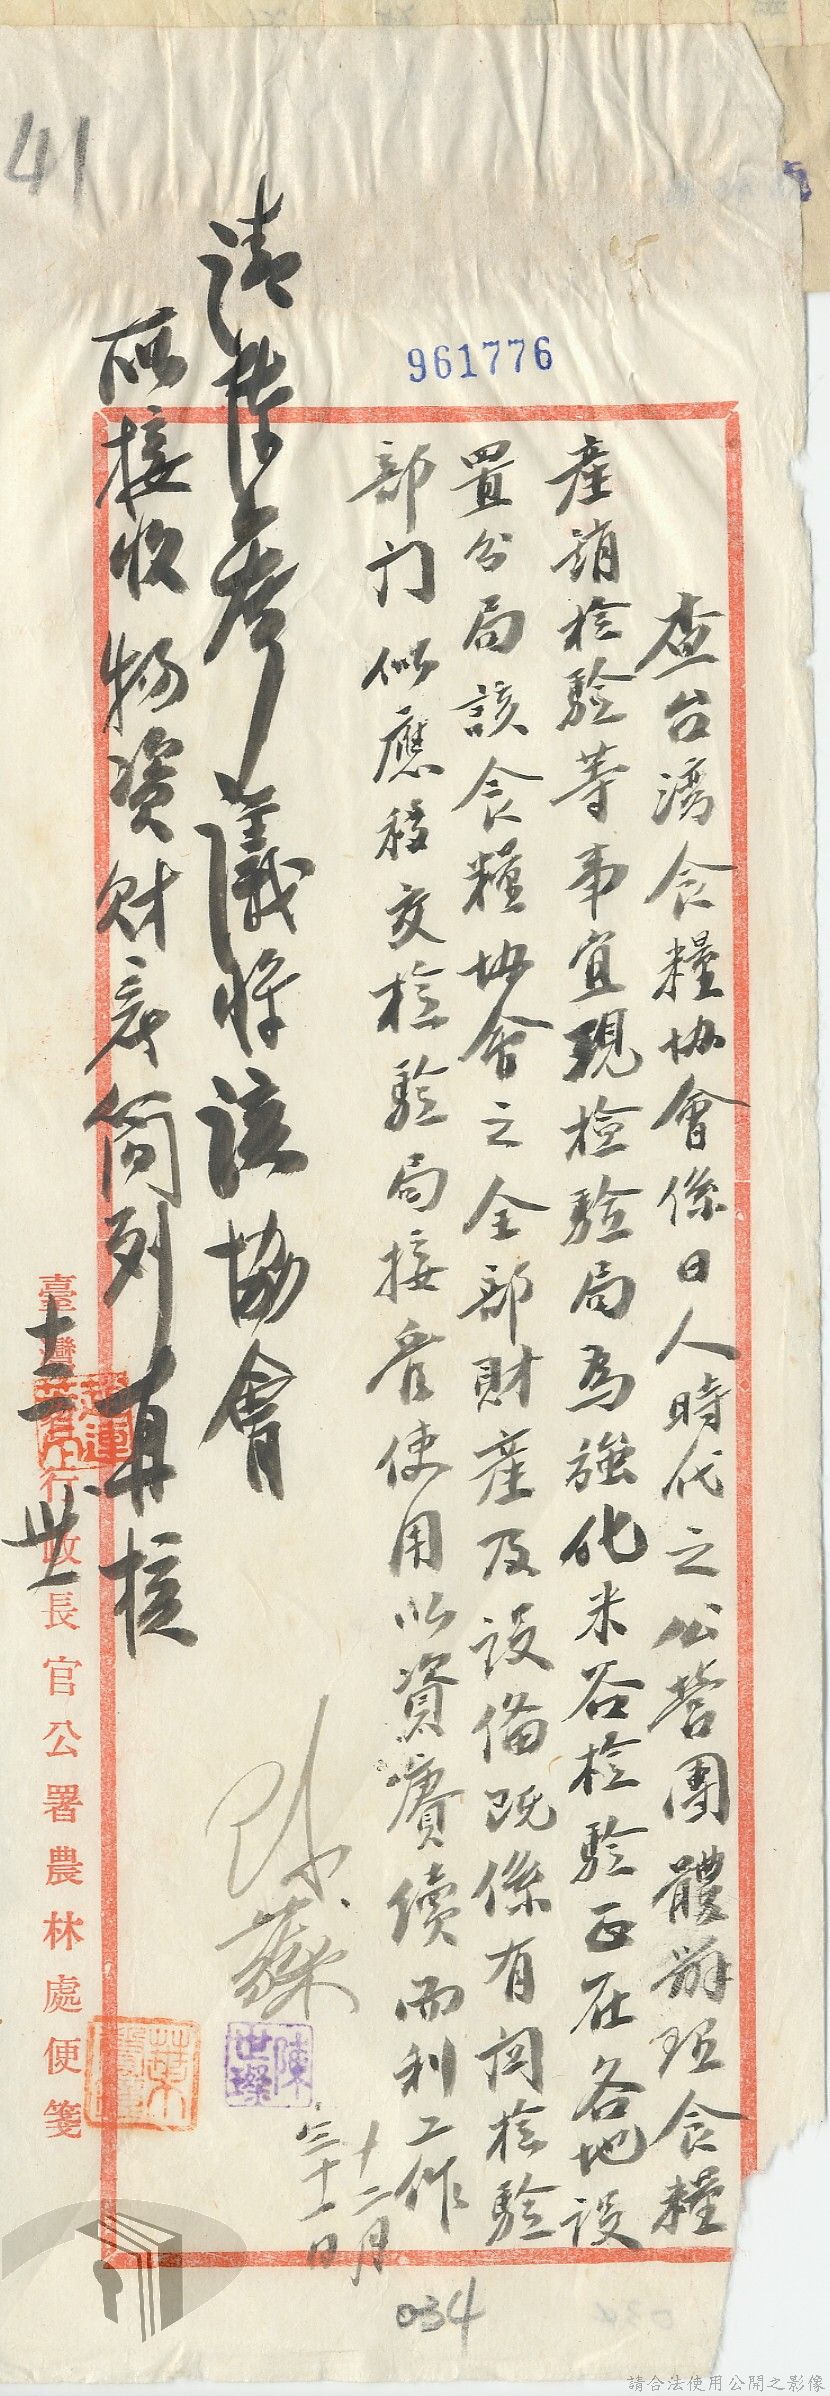 41
961776
查台灣食糧協會係日人時代之公營團體辦理食糧
產銷檢驗等事宜現檢驗局為強化米谷檢驗正在各地設
置分局該食糧協會之全部財產及設備既係有関檢驗
部门似應移交檢驗局接管使用以資賡續而利工作
陳世璨
十二月
三十一日
請陳參議將該協會
所接收物資財產簡列再核
十二 卅一
臺灣省行政長官公署農林處便箋
034
請合法使用公開之影像